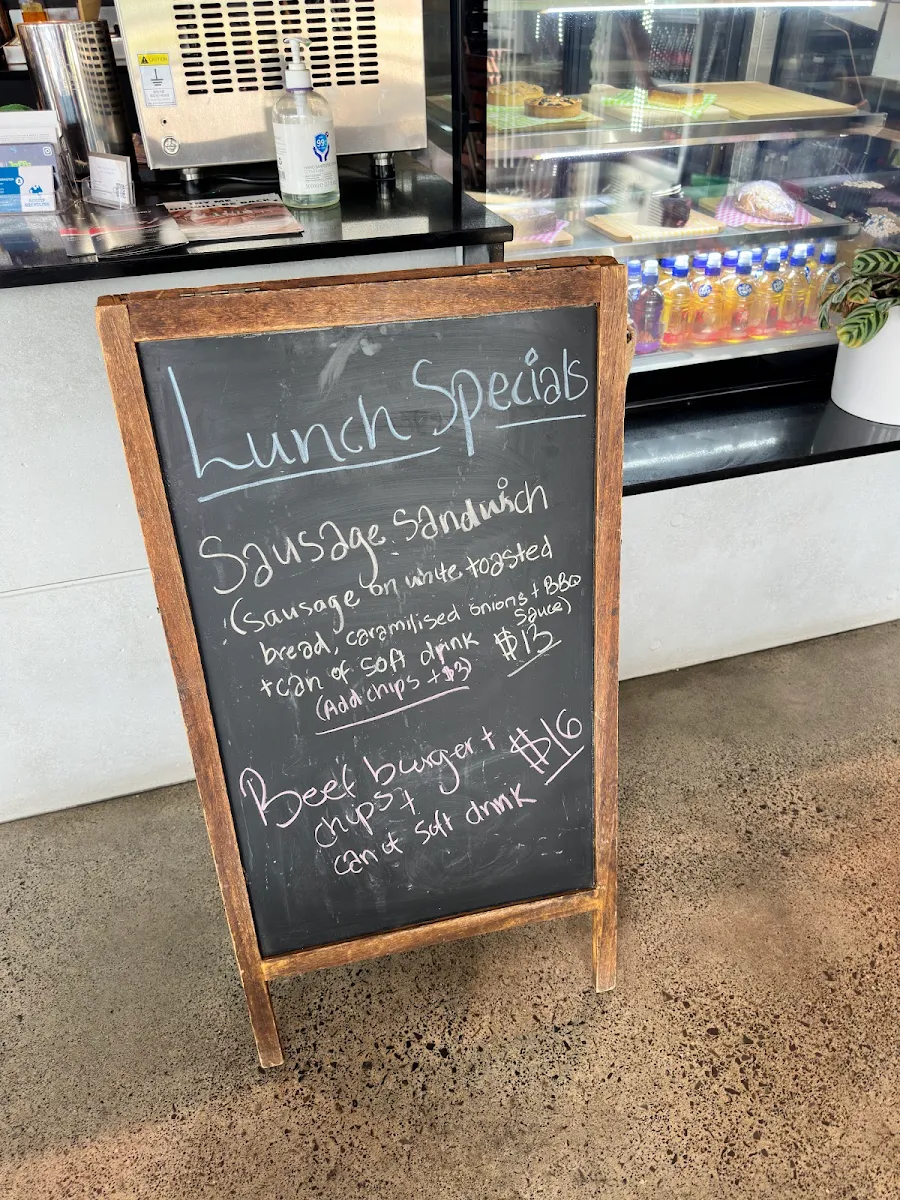 Lunch Specials
Sausage Sandwich
(sausage on white toasted
bread, caramilised onions + BBQ
Sauce)
+ can of soft drink $13
(Add chips + $3)
Beef burger + $16
chips +
can of soft drink
CAUTION